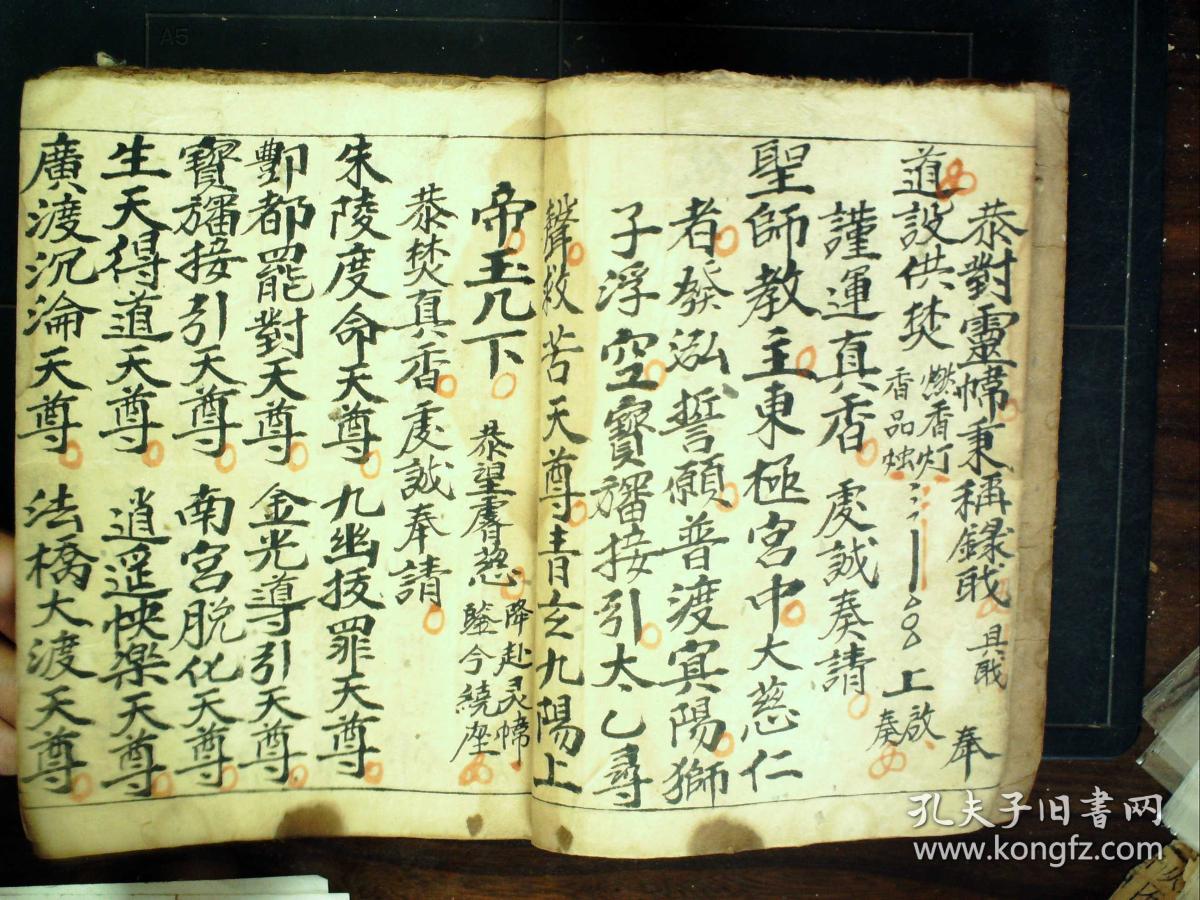 恭對靈幃秉稱録戝 具戝 奉
道設供焚 燃香灯 香品燭 上 啟 奏
謹運真香 虔誠奏請
聖師教主東極宮中大慈仁
者發泓誓願普渡㝠陽獅
子浮空寳旛接引太乙尋
聲救苦天尊青玄九陽上
帝玉几下 恭望睿慈 降赴灵幃 鑒今繞座
恭焚真香虔誠奉請
朱陵度命天尊 九幽拔罪天尊
酆都罷對天尊 金光導引天尊
寳旛接引天尊 南宮脫化天尊
生天得道天尊 逍遥快楽天尊
廣渡沉淪天尊 法橋大渡天尊
A5
孔夫子旧书网
www.kongfz.com